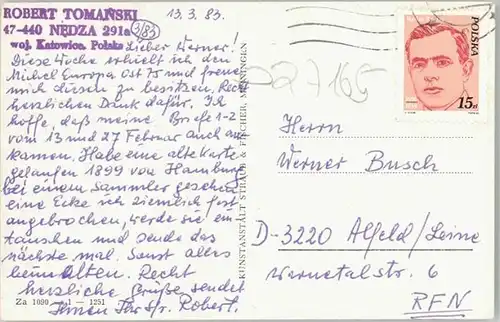 ROBERT TOMAŃSKI
47-440 NĘDZA 291a
woj. Katowice. Polska
3/83
13.3.83.
Lieber Werner!
Diese Woche erhielt ich den
Michel Europa Ost 75 und freue
mich diesen zu besitzen. Recht
herzlichen Dank dafür. Ich
hoffe, daß meine Briefe 1-2
vom 13 und 27 Februar auch an
kamen. Habe eine alte Karte
gelaufen 1899 von Hamburg
bei einem Sammler gesehen
eine Ecke ist ziemlich fest
angebrochen, werde sie ein-
tauschen und sende das
nächste mal. Sonst alles
beim Alten. Recht
herzliche Grüße sendet
Ihnen Ihr Robert.
Za 1099 1 - 1251
KUNSTANSTALT STRAUB & FISCHER, MEININGEN
POLSKA
15 zł
Herrn
Werner Busch
D-3220 Alfeld/Leine
Warnetalstr. 6
RFN